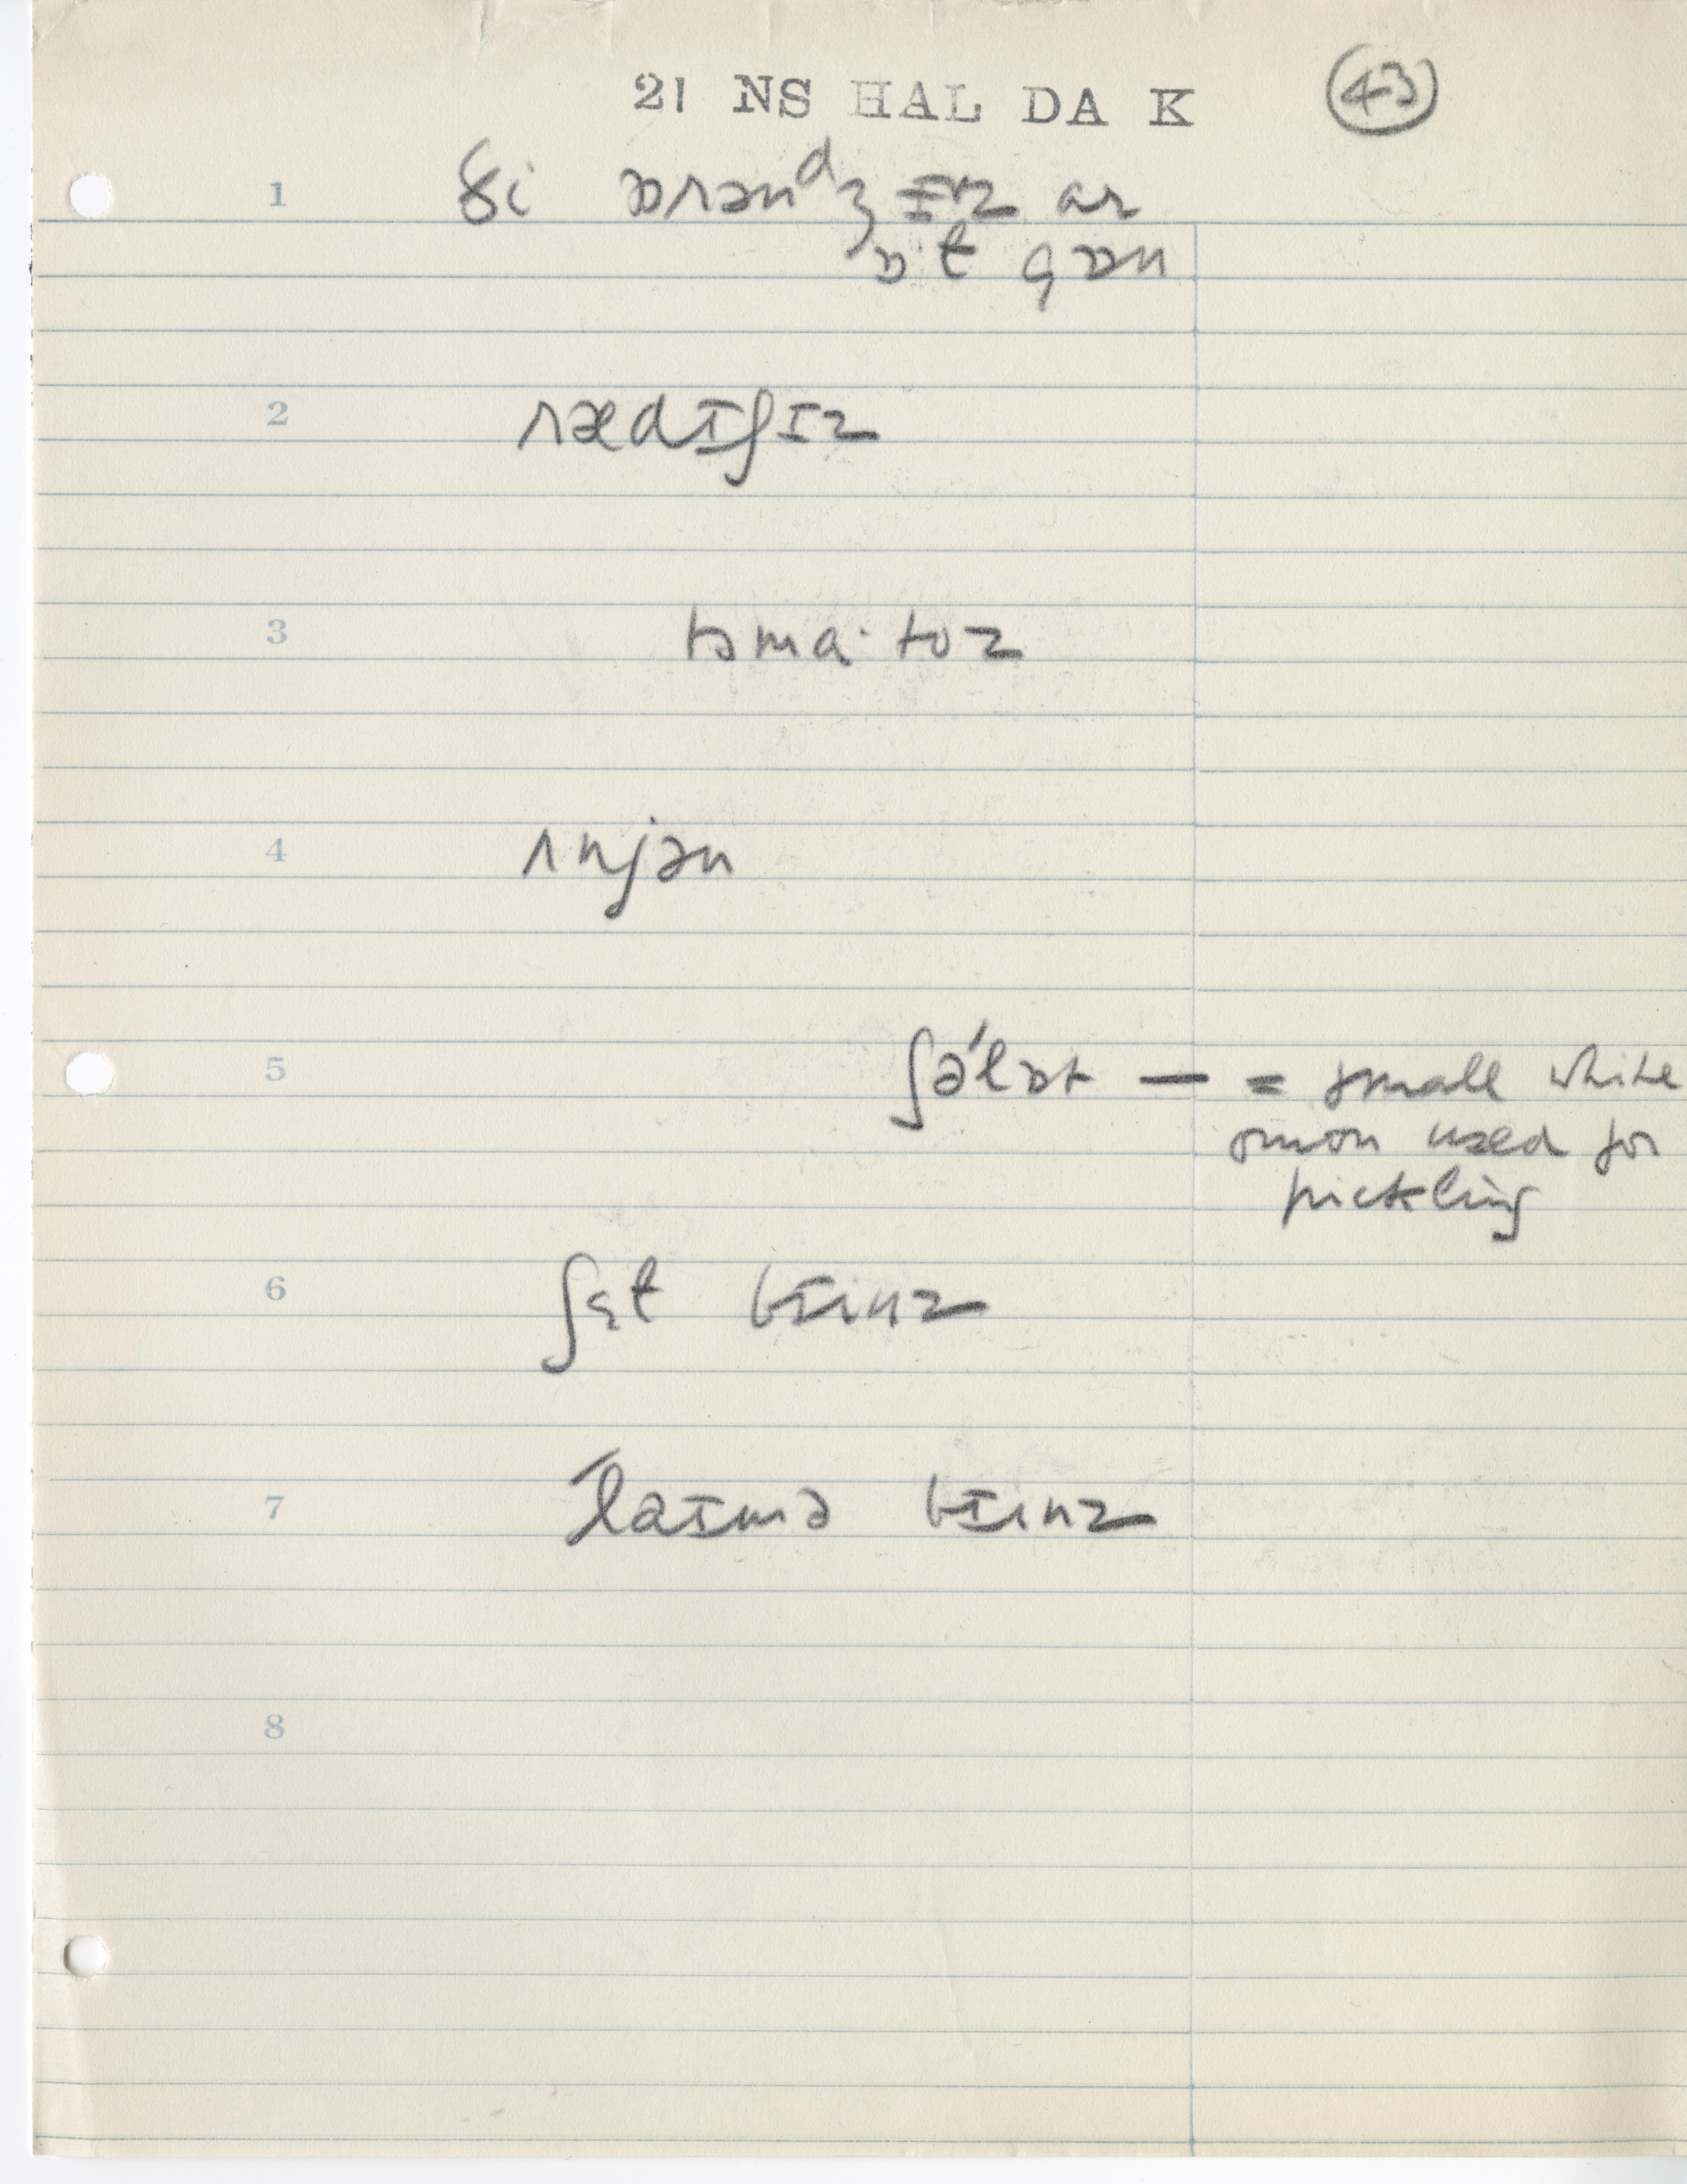 21 NS HAL DA K
43
1 ði ɒrənᵈʒɪz ar
ɒ·ł gɒn
2 rædɪʃɪz
3 təma·toz
4 ʌnjən
5 ʃə'lɒt — = small white
onion used for
pickling
6 ʃɛł bɪinz
7 laɪmə bɪinz
8